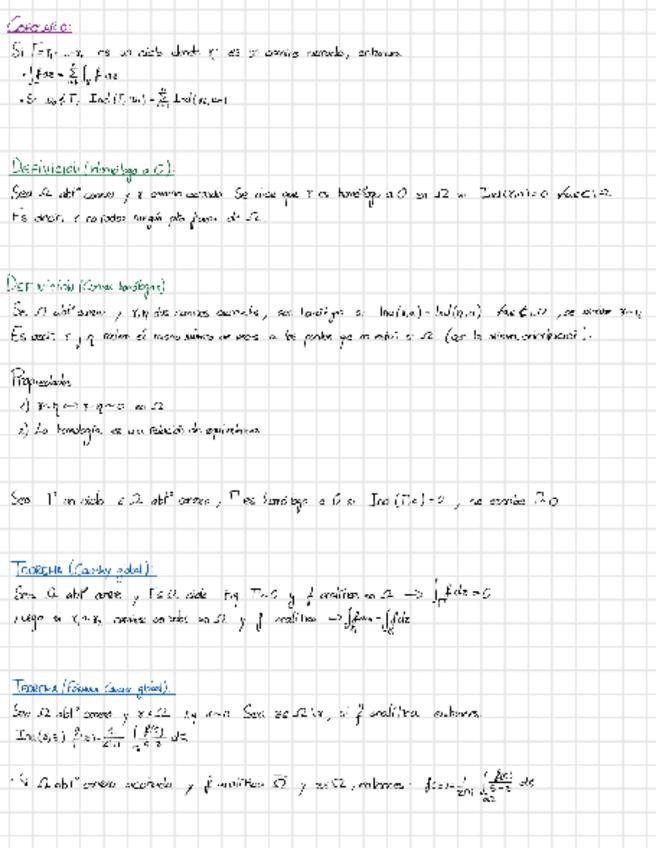 COROLARIO:
Si Γ=γ₁...γₙ es un ciclo donde γᵢ es un camino cerrado, entonces
· ∫ f dz = Σ ∫ f dz
· Si z₀∉Γ, Ind(Γ,z₀) = Σ Ind(γᵢ,z₀)
DEFINICIÓN (Homólogo a 0):
Sea Ω abtº conexo y γ camino cerrado. Se dice que γ es homólogo a 0 en Ω si Ind(γ,a)=0 ∀a∈ℂ\Ω
Es decir, γ no rodea ningún pto fuera de Ω.
DEFINICIÓN (Curvas homólogas)
Sea Ω abtº conexo y γ,η dos caminos cerrados, son homólogos si Ind(γ,a) = Ind(η,a) ∀a, se escribe γ~η
Es decir γ y η rodean el mismo número de veces a los puntos que no están en Ω (con la misma orientación).
Propiedades
1) γ~η ↔ γ-η~0 en Ω
2) La homología es una relación de equivalencia
Sea Γ un ciclo en Ω abtº conexo, Γ es homólogo a 0 si Ind(Γ,a)=0, se escribe Γ~0
TEOREMA (Cauchy global):
Sea Ω abtº conexo y Γ⊂Ω ciclo tq Γ~0 y f analítica en Ω → ∫ f dz = 0
Luego si γ₁~γ₂ caminos cerrados en Ω y f analítica → ∫ f dz = ∫ f dz
TEOREMA (Fórmula Cauchy global):
Sea Ω abtº conexo y γ⊂Ω tq γ~0. Sea z∈Ω\γ, si f analítica entonces
Ind(γ,z) f(z) = 1/2πi ∫ f(ς)/ς-z dς
· Si Ω abtº conexo acotado y f analítica Ω̅ y z∈Ω, entonces: f(z) = 1/2πi ∫ f(ς)/ς-z dς